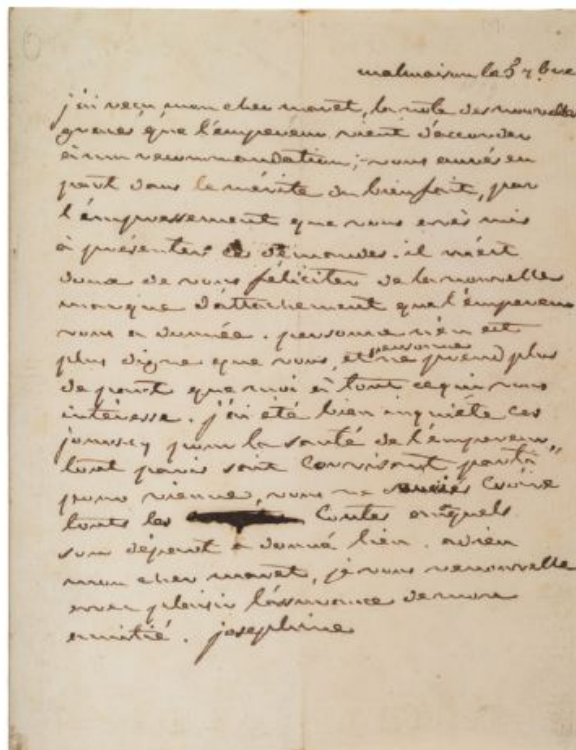 malmaison le 5 7bre
j'ai reçu mon cher maret, la note des nouvelles
graces que l'empereur vient d'accorder
à ma recommandation; vous avés eu
part dans le mérite du bienfait, par
l'empressement que vous avés mis
à présenter ces demandes. il m'est
doux de vous féliciter de la nouvelle
marque d'attachement que l'empereur
vous a donnée. personne n'en est
plus digne que vous, et personne ne prend plus
de part que moi à tout ce qui vous
intéresse. j'ai été bien inquiète ces
jours cy pour la santé de l'empereur,
tout paris sait Corvisart parti
pour vienne, vous ne Croire
touts les Contes auxquels
son départ a donné lieu. adieu
mon cher maret, je vous renouvelle
avec plaisir l'assurance de mon
amitié. joséphine